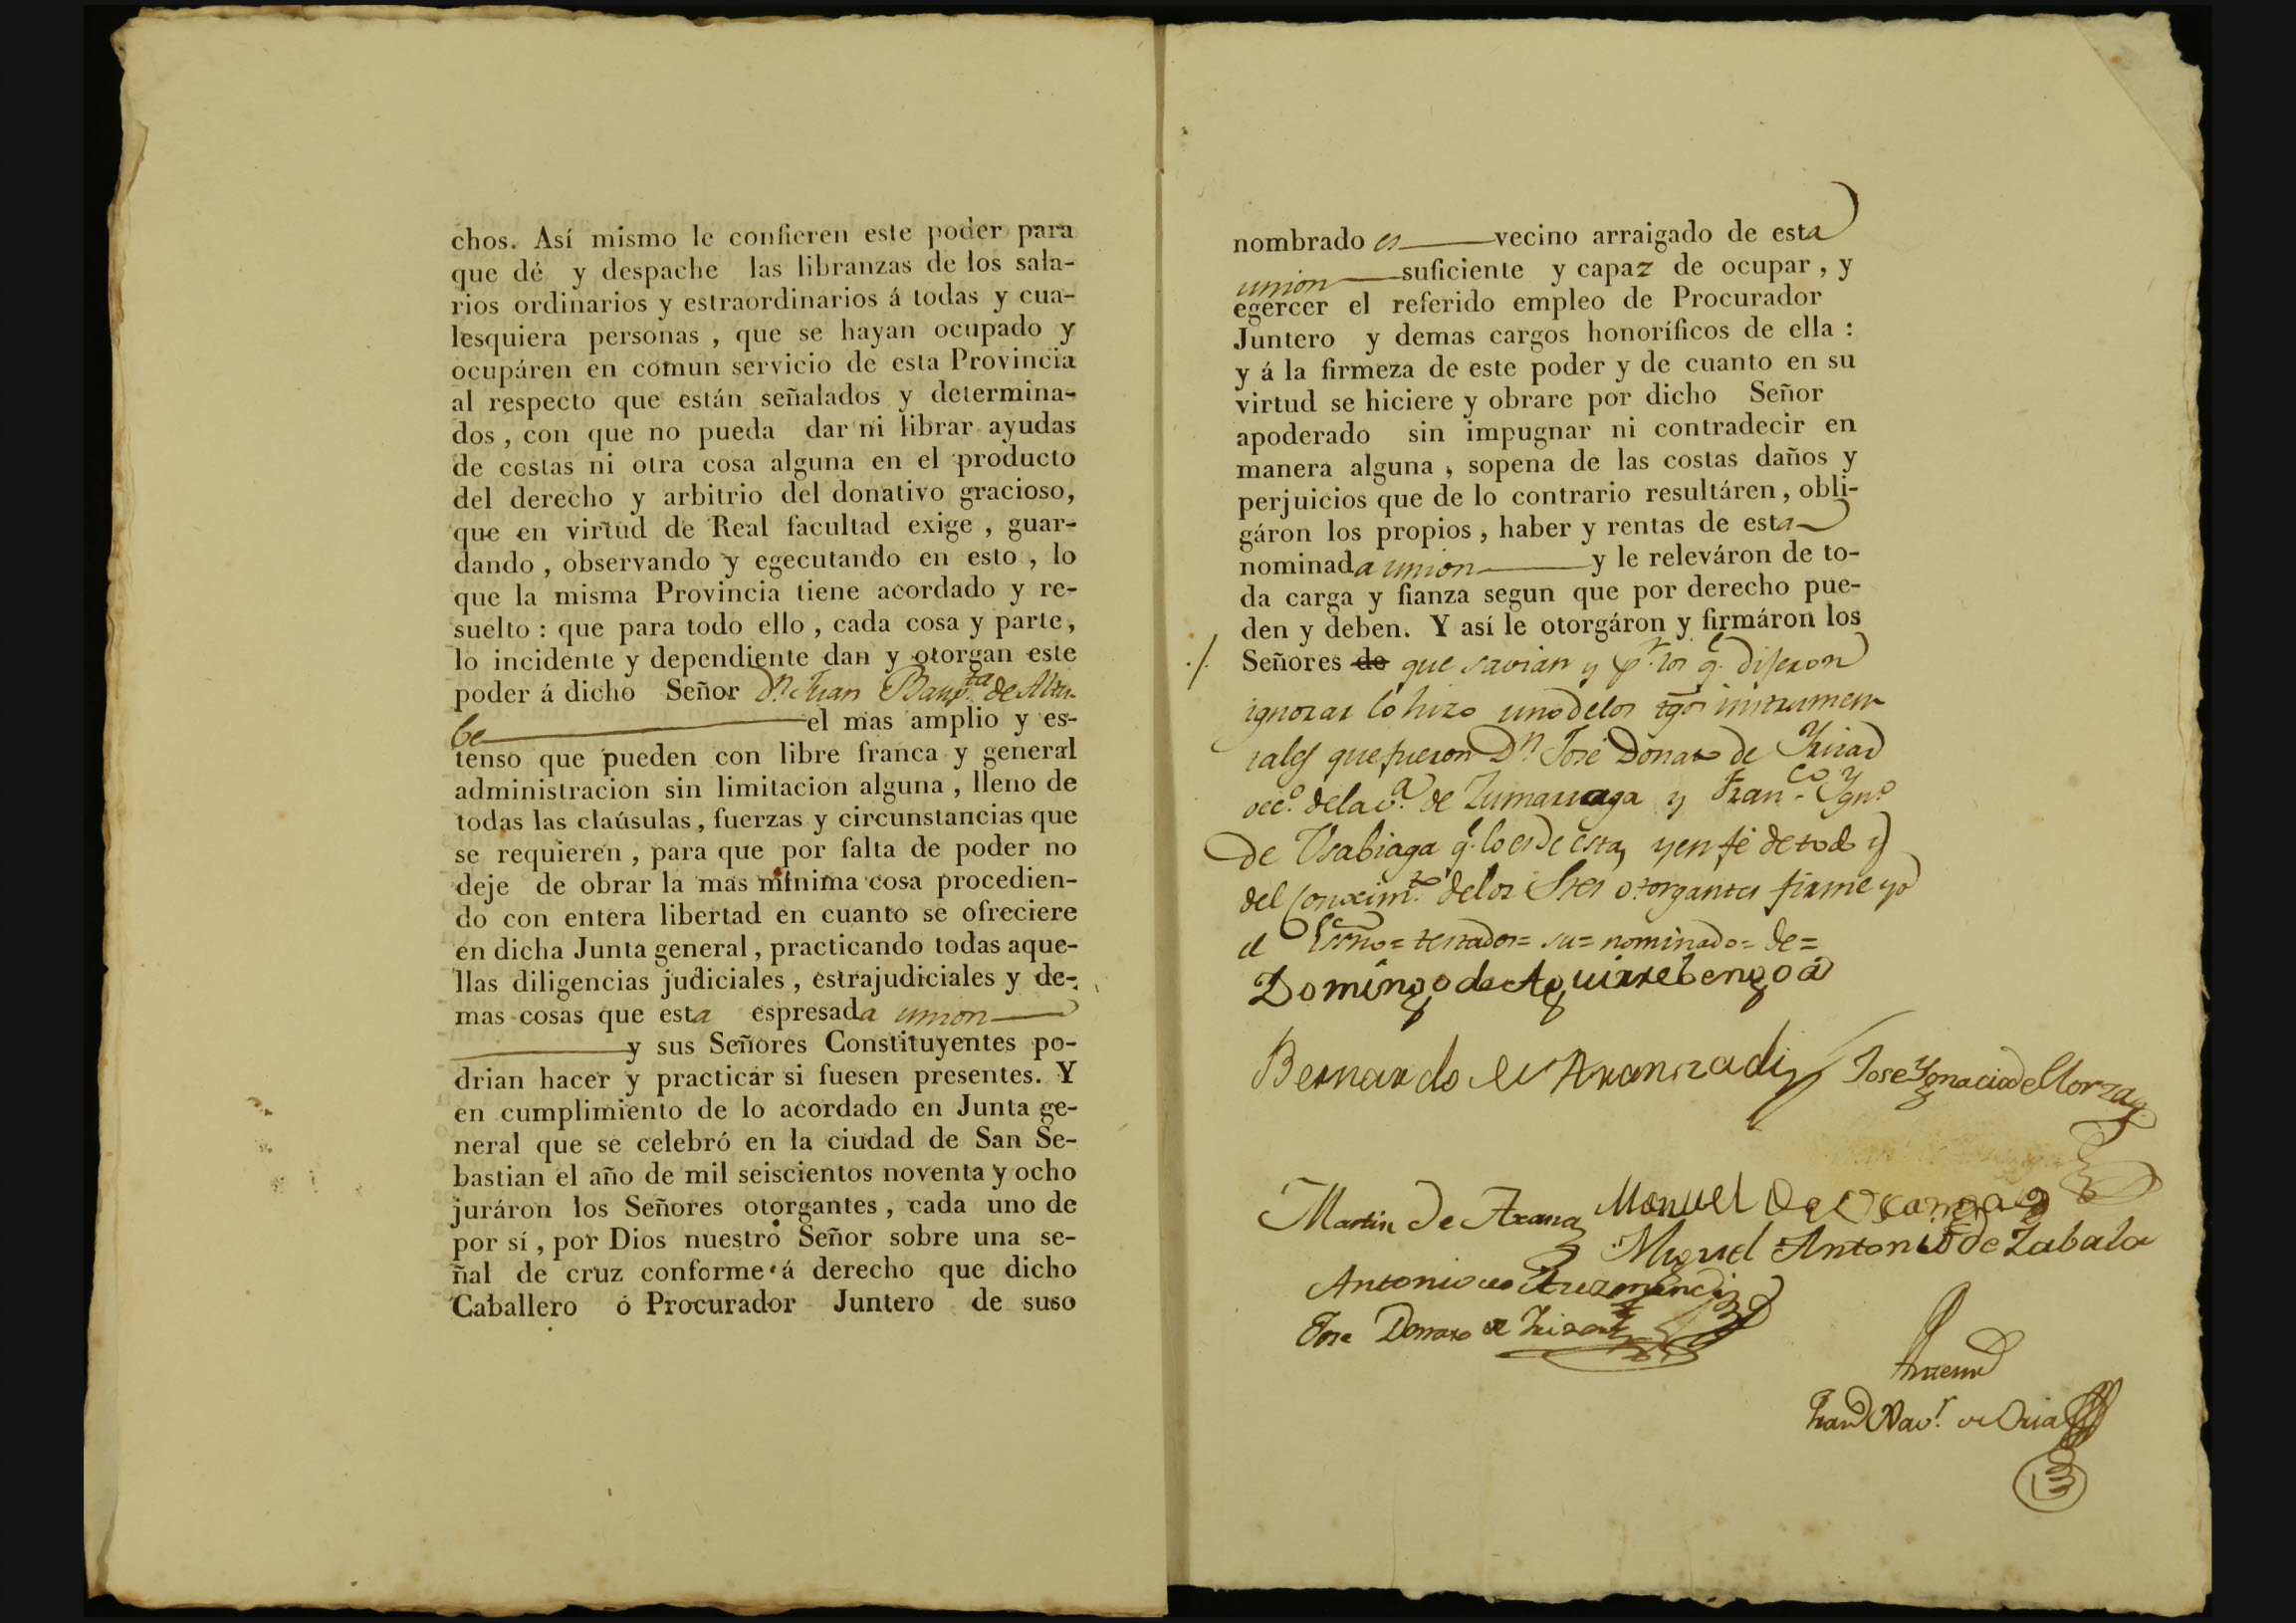 chos. Así mismo le confieren este poder para
que dé y despache las libranzas de los sala-
rios ordinarios y estraordinarios á todas y cua-
lesquiera personas , que se hayan ocupado y
ocupáren en comun servicio de esta Provincia
al respecto que están señalados y determina-
dos , con que no pueda dar ni librar ayudas
de costas ni otra cosa alguna en el producto
del derecho y arbitrio del donativo gracioso,
que en virtud de Real facultad exige , guar-
dando , observando y egecutando en esto , lo
que la misma Provincia tiene acordado y re-
suelto : que para todo ello , cada cosa y parte,
lo incidente y dependiente dan y otorgan este
poder á dicho Señor Dn. Juan Baupta. de Altu-
be el mas amplio y es-
tenso que pueden con libre franca y general
administracion sin limitacion alguna , lleno de
todas las claúsulas, fuerzas y circunstancias que
se requieren , para que por falta de poder no
deje de obrar la mas mínima cosa procedien-
do con entera libertad en cuanto se ofreciere
en dicha Junta general, practicando todas aque-
llas diligencias judiciales , estrajudiciales y de-
mas cosas que esta espresada union
y sus Señores Constituyentes po-
drian hacer y practicar si fuesen presentes. Y
en cumplimiento de lo acordado en Junta ge-
neral que se celebró en la ciudad de San Se-
bastian el año de mil seiscientos noventa y ocho
juráron los Señores otorgantes , cada uno de
por sí , por Dios nuestro Señor sobre una se-
ñal de cruz conforme á derecho que dicho
Caballero ó Procurador Juntero de suso
nombrado es vecino arraigado de esta
union suficiente y capaz de ocupar , y
egercer el referido empleo de Procurador
Juntero y demas cargos honoríficos de ella :
y á la firmeza de este poder y de cuanto en su
virtud se hiciere y obrare por dicho Señor
apoderado sin impugnar ni contradecir en
manera alguna , sopena de las costas daños y
perjuicios que de lo contrario resultáren , obli-
gáron los propios , haber y rentas de esta
nominada union y le releváron de to-
da carga y fianza segun que por derecho pue-
den y deben. Y así le otorgáron y firmáron los
./. Señores de que savian y pr. los q. dijeron
ignorar lo hizo uno de los tgos instrumen
tales que fueron Dn. José Donato de Yrizar
vecº. de la va. de Zumarraga y Franco. Ygnº.
de Usabiaga q. lo es de esta, y en fé de todo y
del conocimto. de los Sres otorgantes firme yo
el Esno = testados = su = nominado = de =
Domingo de Aguirrebengoa
Bernardo de Aranzadi Jose Ygnacio de Elorza
Martin de Arana Manuel de
Miguel Antonio de Zabala
Antonio de Auzmendi
Jose Donato de Yrizar
Antemi
Franco Xavr. de Oria